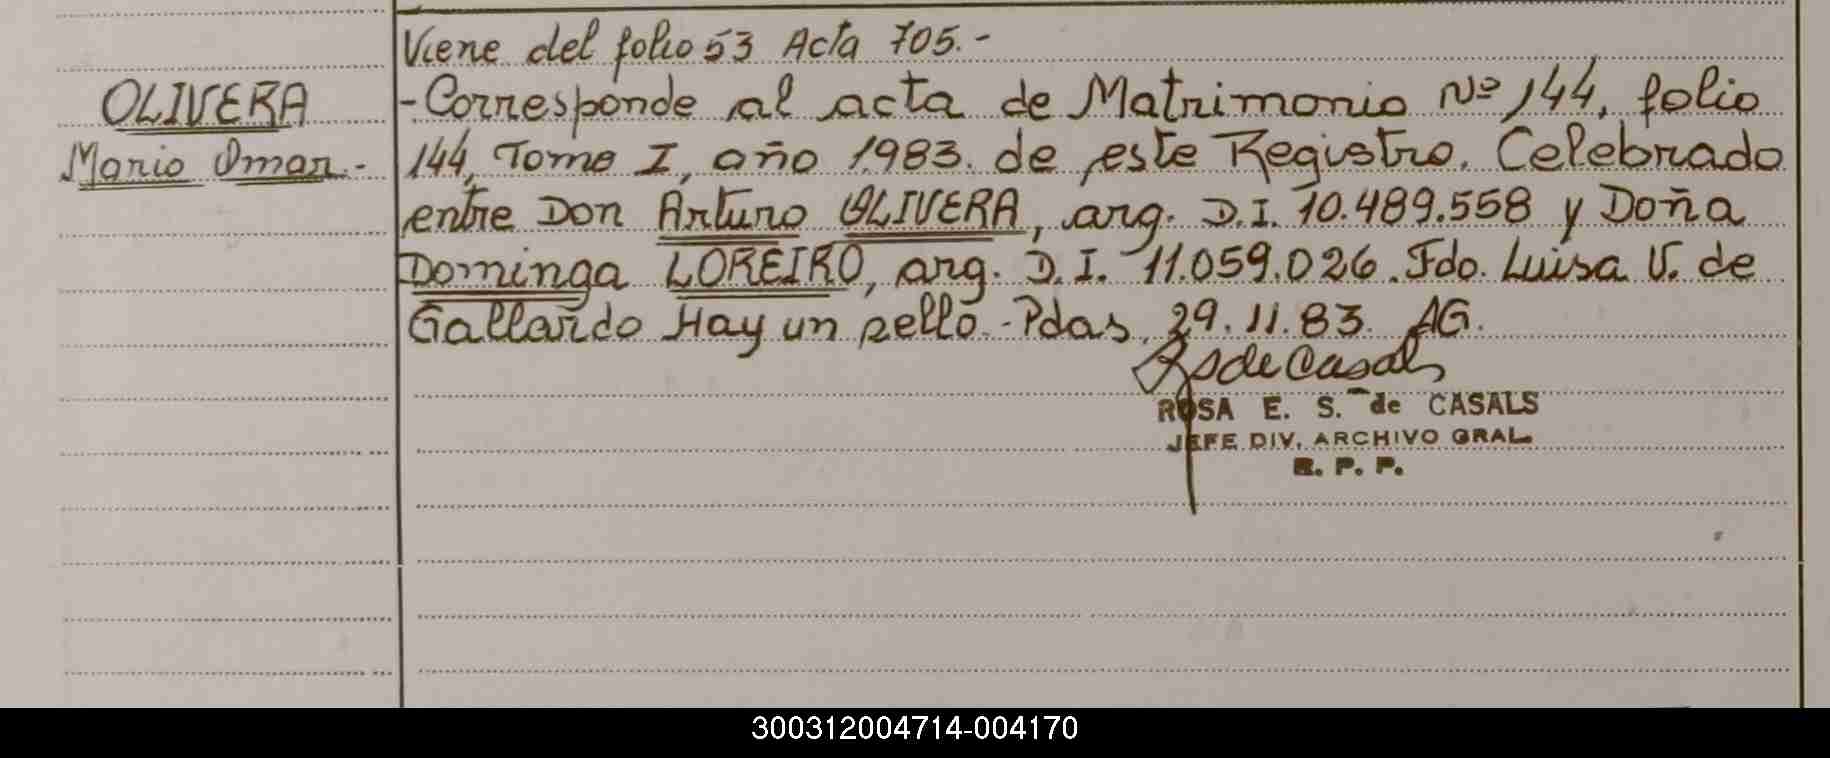 Viene del folio 53 Acta 705.-
OLIVERA
Mario Omar.-
-Corresponde al acta de Matrimonio Nº 144, folio
144, Tomo I, año 1.983. de este Registro. Celebrado
entre Don Arturo OLIVERA, arg. D.I. 10.489.558 y Doña
Dominga LOREIRO, arg. D.I. 11.059.026. Fdo. Luisa V. de
Gallardo Hay un sello.-Pdas, 29.11.83. AG.
RSdeCasals
ROSA E. S. de CASALS
JEFE DIV. ARCHIVO GRAL.
R. P. P.
300312004714-004170